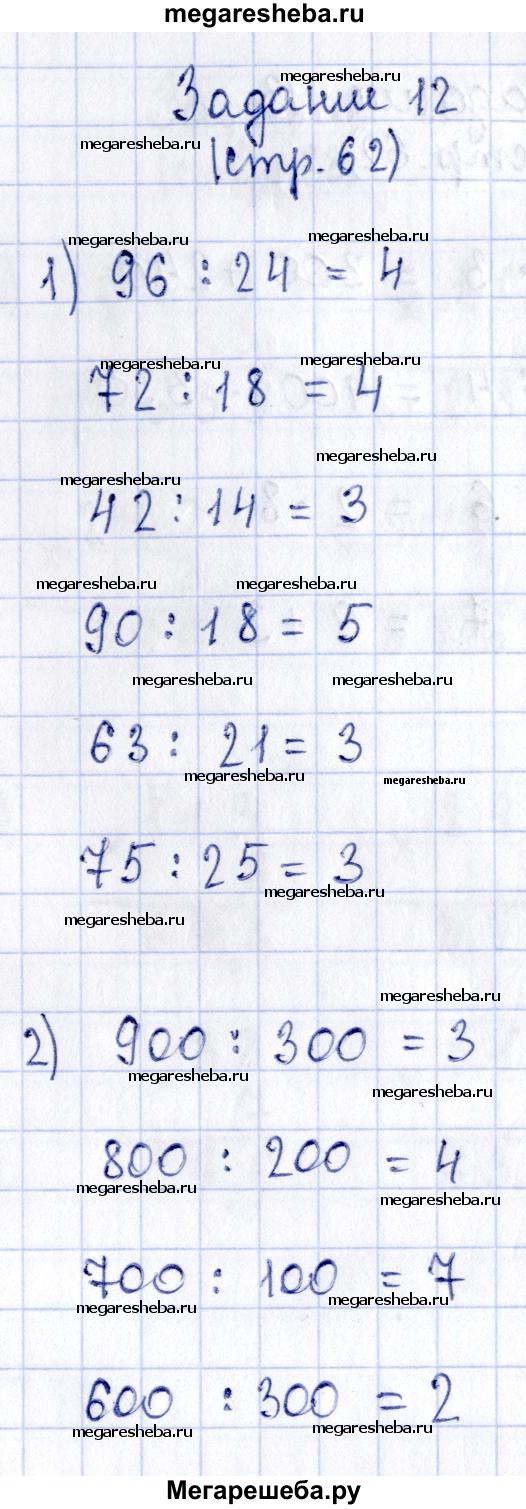 megaresheba.ru
megaresheba.ru
Задание 12
megaresheba.ru
(стр. 62)
megaresheba.ru
megaresheba.ru
1) 96 : 24 = 4
megaresheba.ru
megaresheba.ru
72 : 18 = 4
megaresheba.ru
megaresheba.ru
42 : 14 = 3
megaresheba.ru
megaresheba.ru
90 : 18 = 5
megaresheba.ru
megaresheba.ru
63 : 21 = 3
megaresheba.ru
megaresheba.ru
75 : 25 = 3
megaresheba.ru
megaresheba.ru
megaresheba.ru
2) 900 : 300 = 3
megaresheba.ru
megaresheba.ru
800 : 200 = 4
megaresheba.ru
megaresheba.ru
700 : 100 = 7
megaresheba.ru
megaresheba.ru
600 : 300 = 2
megaresheba.ru
megaresheba.ru
Мегарешеба.ру